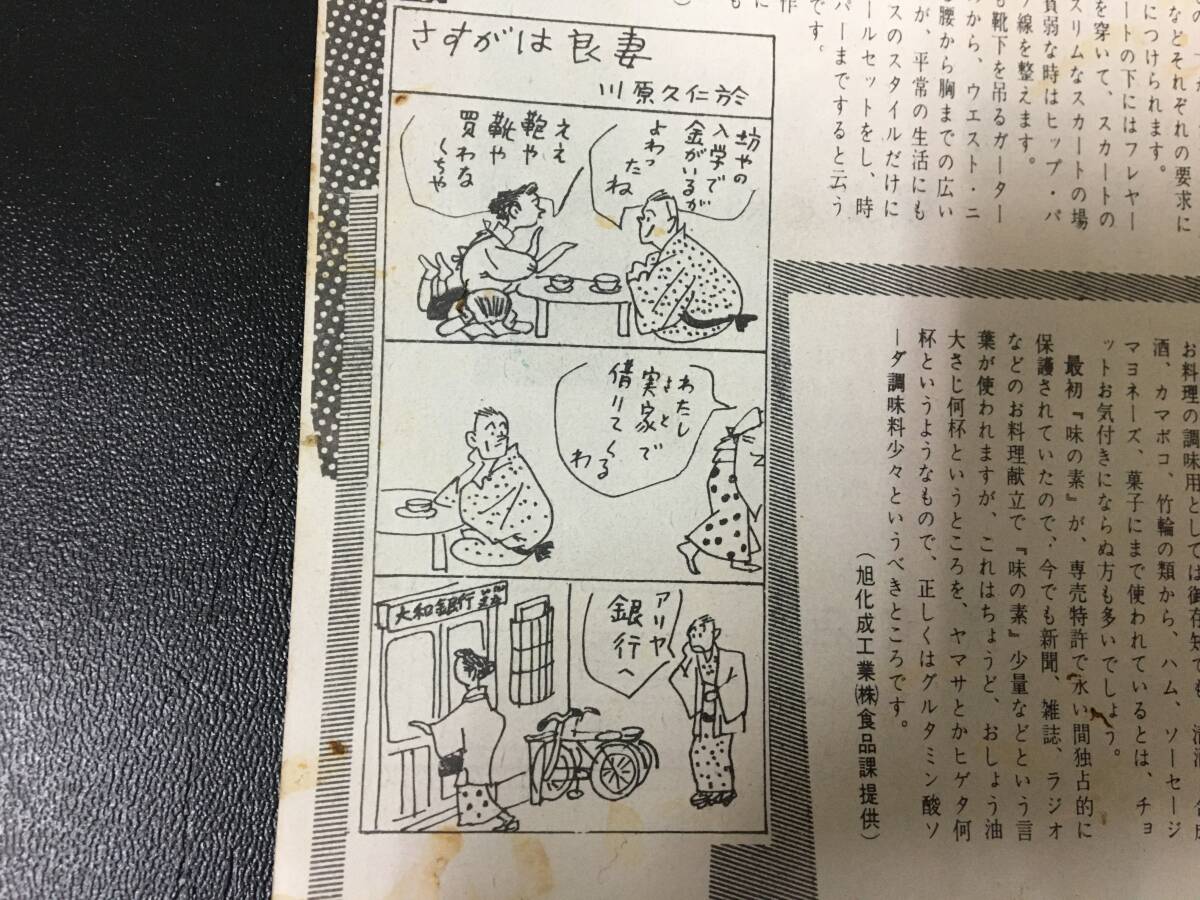 などそれぞれの要求に
につけられます。
ートの下にはフレヤー
を穿いて、スカートの
スリムなスカートの場
貧弱な時はヒップ・パ
線を整えます。
も靴下を吊るガーター
から、ウエスト・ニ
腰から胸までの広い
が、平常の生活にも
スのスタイルだけに
ールセットをし、時
パーまですると云う
です。
さすがは良妻
川原久仁於
坊やの
入学で
金がいるが
よわったね
ええ
鞄や
靴や
買わな
くちゃ
わたし
ちょっと
実家で
借りてくる
わ
アリヤ
銀行へ
大和銀行
お料理の調味用としては御存知で
酒、カマボコ、竹輪の類から、ハム、ソーセージ
マヨネーズ、菓子にまで使われているとは、チョ
ットお気付きにならぬ方も多いでしょう。
最初『味の素』が、専売特許で永い間独占的に
保護されていたので、今でも新聞、雑誌、ラジオ
などのお料理献立で『味の素』少量などという言
葉が使われますが、これはちょうど、おしょう油
大さじ何杯というところを、ヤマサとかヒゲタ何
杯というようなもので、正しくはグルタミン酸ソ
ーダ調味料少々というべきところです。
(旭化成工業㈱食品課提供)